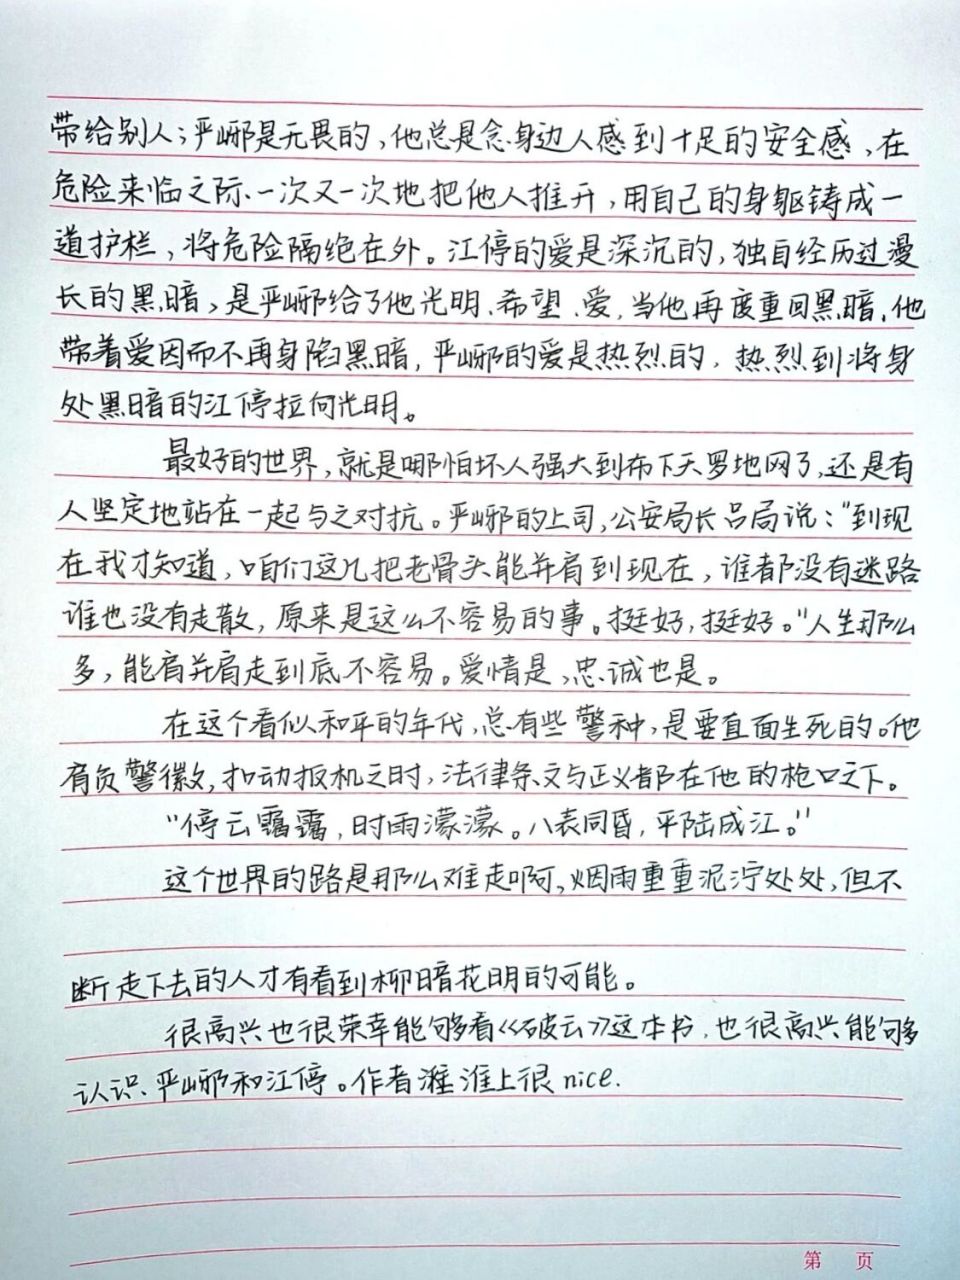 带给别人；严峫是无畏的，他总是念身边人感到十足的安全感，在
危险来临之际、一次又一次地把他人推开，用自己的身躯铸成一
道护栏，将危险隔绝在外。江停的爱是深沉的，独自经历过漫
长的黑暗，是严峫给了他光明、希望、爱，当他再度重回黑暗，他
带着爱因而不再身陷黑暗，严峫的爱是热烈的，热烈到将身
处黑暗的江停拉向光明。
最好的世界，就是哪怕坏人强大到布下天罗地网了，还是有
人坚定地站在一起与之对抗。严峫的上司，公安局长吕局说：“到现
在我才知道，咱们这几把老骨头能并肩到现在，谁都没有迷路
谁也没有走散，原来是这么不容易的事。挺好，挺好。”人生那么
多，能肩并肩走到底不容易。爱情是，忠诚也是。
在这个看似和平的年代，总有些警种，是要直面生死的。他
肩负警徽，扣动扳机之时，法律条文与正义都在他的枪口之下。
“停云霭霭，时雨濛濛。八表同昏，平陆成江。”
这个世界的路是那么难走啊，烟雨重重泥泞处处，但不
断走下去的人才有看到柳暗花明的可能。
很高兴也很荣幸能够看《破云》这本书，也很高兴能够多
认识、严峫和江停。作者淮上很nice.
第 页